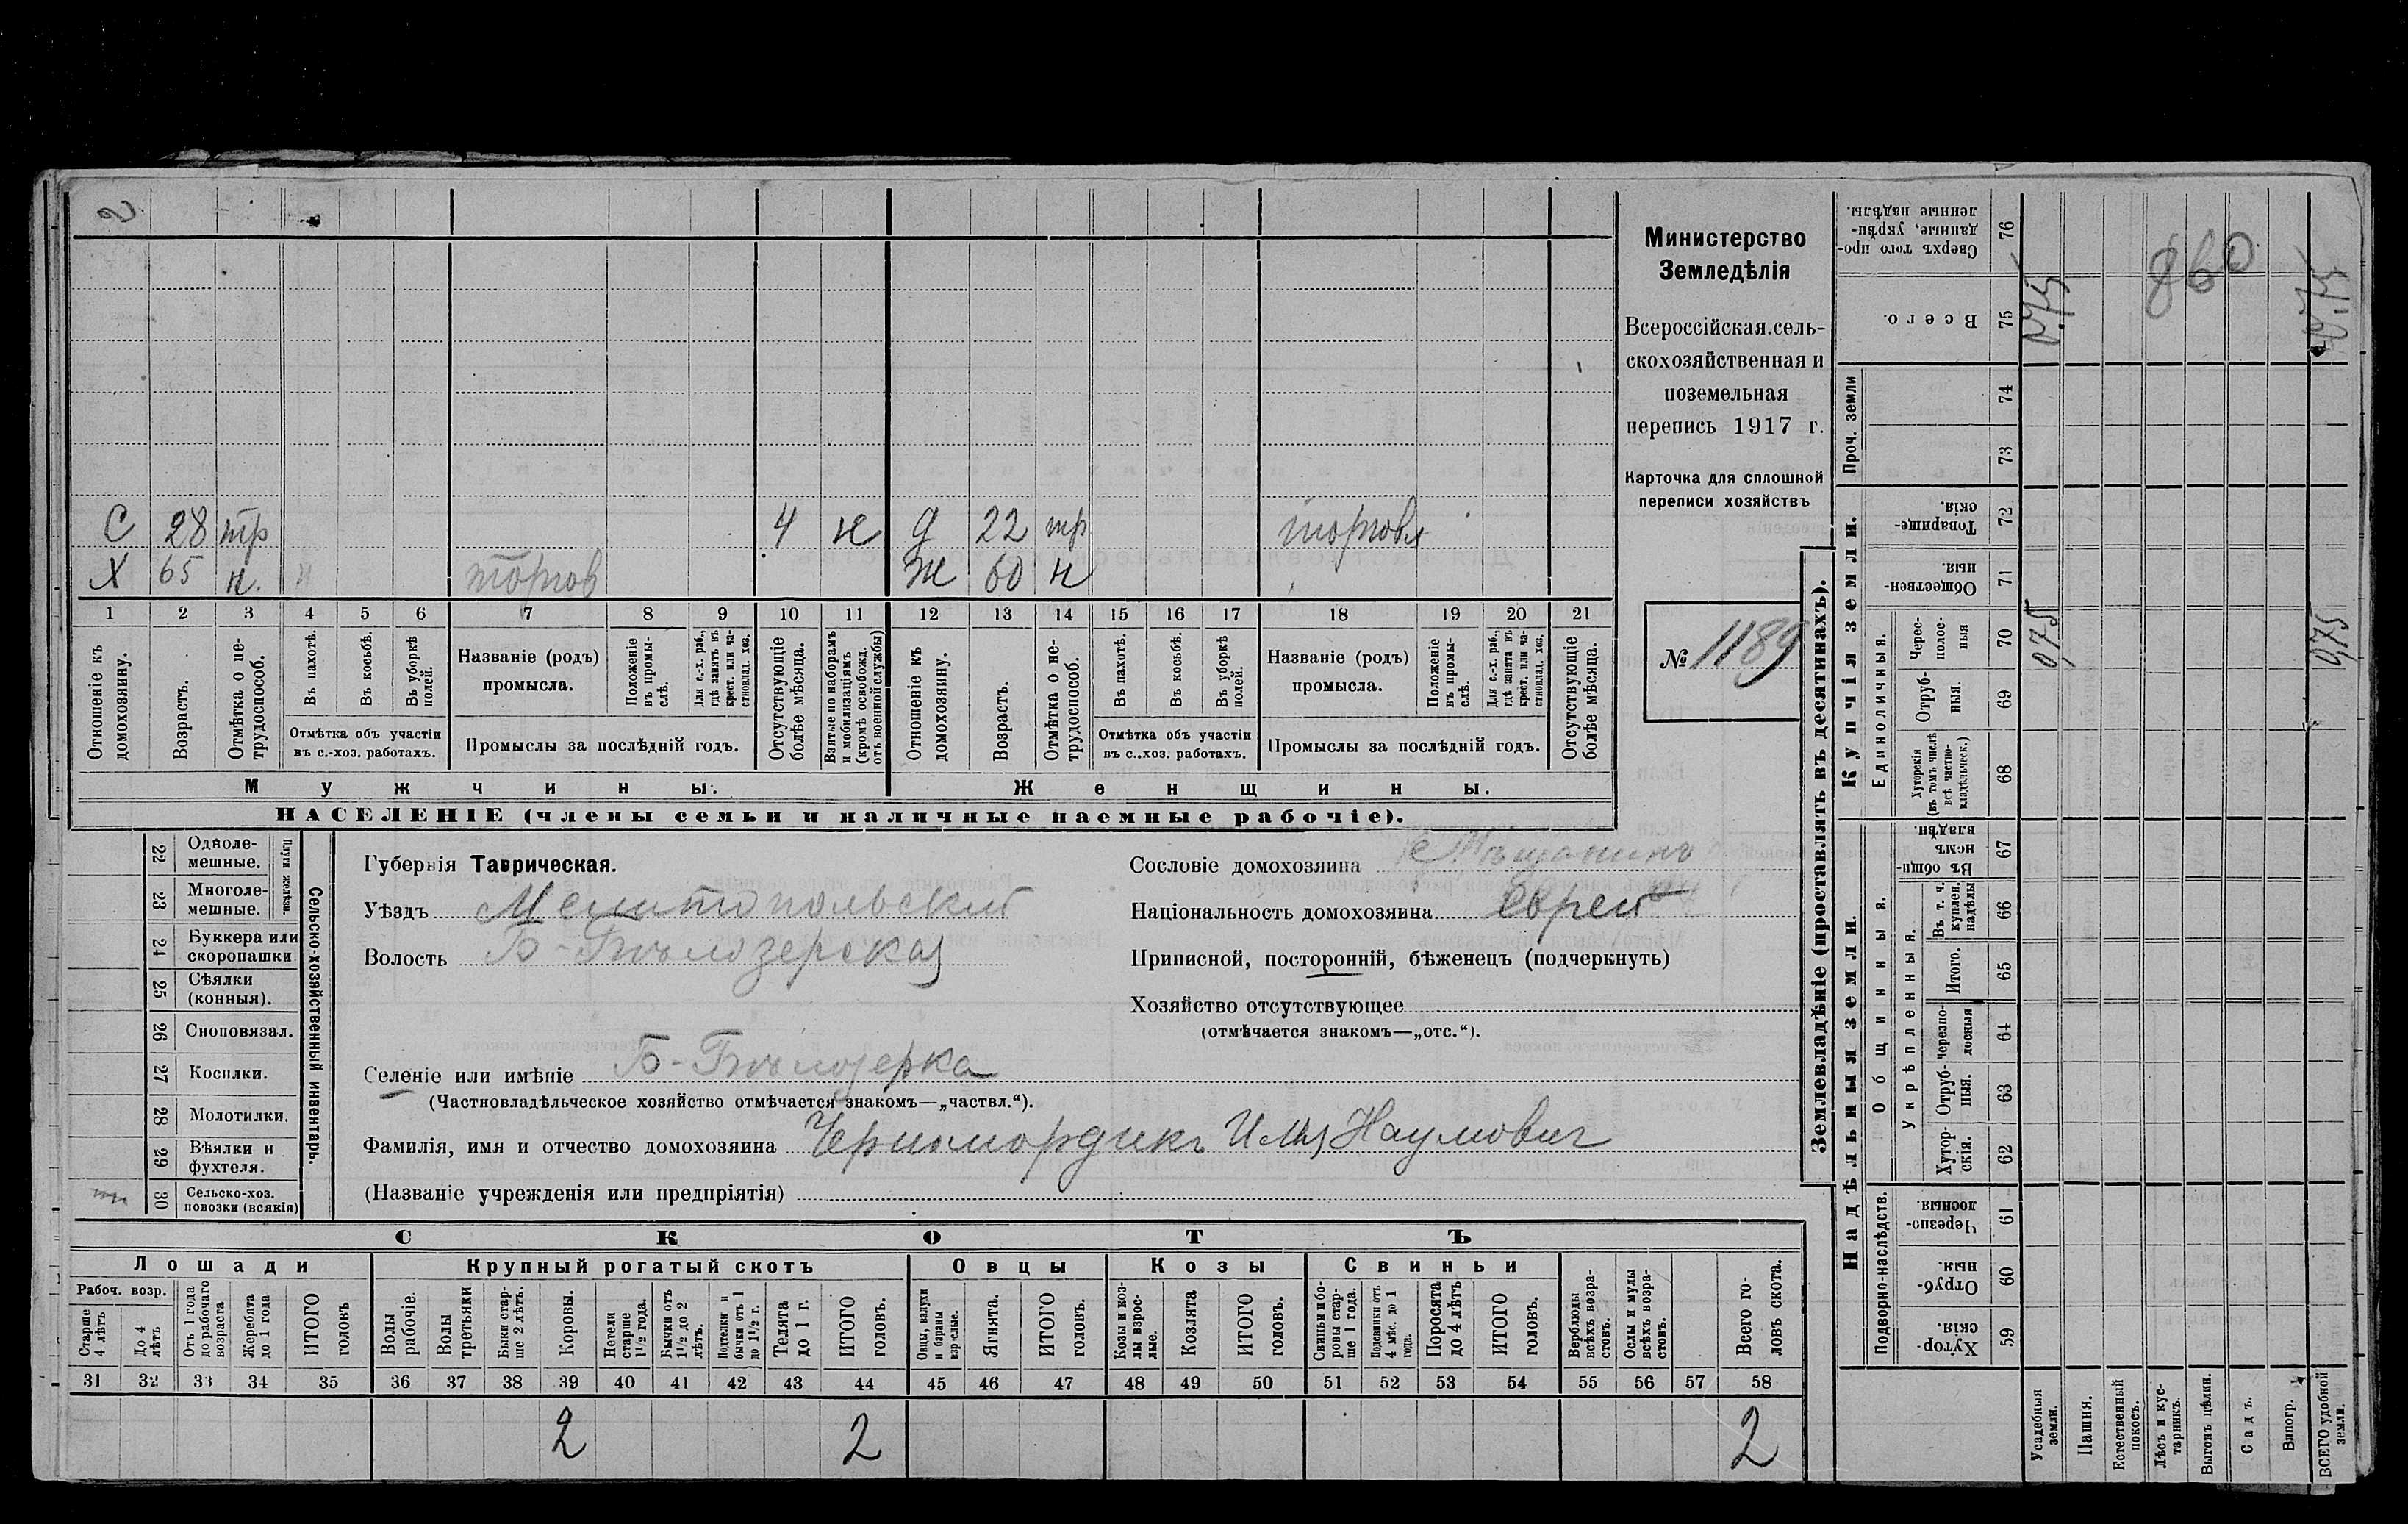 С 28 тр 4 н д 22 тр торговл
Х 65 н. н торгов ж 60 н
1 2 3 4 5 6 7 8 9 10 11 12 13 14 15 16 17 18 19 20 21
Отношеніе къ домохозяину.
Возрастъ.
Отмѣтка о не-трудоспособ.
Въ пахотѣ.
Въ косьбѣ.
Въ уборкѣ полей.
Отмѣтка объ участіи
въ с.-хоз. работахъ.
Названіе (родъ)
промысла.
Положеніе въ промы-слѣ.
Для с.-х. раб., гдѣ занятъ въ крест. или ча-стновлад. хоз.
Промыслы за послѣдній годъ.
Отсутствующіе болѣе мѣсяца.
Взятые по наборамъ и мобилизаціямъ (кромѣ освобожд. отъ военной службы)
Отношеніе къ домохозяину.
Возрастъ.
Отмѣтка о не-трудоспособ.
Въ пахотѣ.
Въ косьбѣ.
Въ уборкѣ полей.
Отмѣтка объ участіи
въ с..хоз. работахъ.
Названіе (родъ)
промысла.
Положеніе въ промы-слѣ.
Для с.-х. раб., гдѣ занята въ крест. или ча-стновлад. хоз.
Промыслы за послѣдній годъ.
Отсутствующіе болѣе мѣсяца.
Мужчины.
Женщины.
НАСЕЛЕНІЕ (члены семьи и наличные наемные рабочіе).
Министерство
Земледѣлія
Всероссійская.сель-
скохозяйственная и
поземельная
перепись 1917 г.
Карточка для сплошной
переписи хозяйствъ
№ 1189
22 Одноле-
мешные.
23 Многоле-
мешные.
Плуги желѣзн.
24 Буккера или
скоропашки
25 Сѣялки
(конныя).
26 Сноповязал.
27 Косилки.
28 Молотилки.
29 Вѣялки и
фухтеля.
30 Сельско-хоз.
повозки (всякія)
Сельско-хозяйственный инвентарь.
Губернія Таврическая.
Уѣздъ Мелитопольский
Волость Б-Бѣлозерская
Сословіе домохозяина Мѣщанинъ
Національность домохозяина еврей
Приписной, посторонній, бѣженецъ (подчеркнуть)
Хозяйство отсутствующее
(отмѣчается знакомъ—„отс.“).
Селеніе или имѣніе Б-Бѣлозерка
(Частновладѣльческое хозяйство отмѣчается знакомъ—„частвл.“).
Фамилія, имя и отчество домохозяина Черномордикъ Илья Наумович
(Названіе учрежденія или предпріятія)
СКОТЪ
Лошади
Крупный рогатый скотъ
Овцы
Козы
Свиньи
Рабоч. возр.
Старше 4 лѣтъ
До 4 лѣтъ
Отъ 1 года до рабочаго возраста
Жеребята до 1 года
ИТОГО головъ
Волы рабочіе.
Волы третьяки
Быки стар-ше 2 лѣтъ.
Коровы.
Нетели старше 1½ года.
Бычки отъ 1½ до 2 лѣтъ.
Подтелки и бычки отъ 1 до 1½ г.
Телята до 1 г.
ИТОГО головъ.
Овцы, валухи и бараны взрослые.
Ягнята.
ИТОГО головъ.
Козы и коз-лы взрос-лые.
Козлята
ИТОГО головъ.
Свиньи и бо-ровы стар-ше 1 года.
Подсвинки отъ 4 мѣс. до 1 года.
Поросята до 4 лѣтъ
ИТОГО головъ.
Верблюды всѣхъ возра-стовъ.
Ослы и мулы всѣхъ возра-стовъ.
Всего го-ловъ скота.
31 32 33 34 35 36 37 38 39 40 41 42 43 44 45 46 47 48 49 50 51 52 53 54 55 56 57 58
2 2 2
Землевладѣніе (проставлять въ десятинахъ).
Надѣльныя земли.
Купчія земли.
Проч. земли
Подворно-наслѣдств.
Общинныя.
Укрѣпленныя.
Единоличныя.
Хутор-скія. 59
Отруб-ныя. 60
Черезпо-лосныя. 61
Хутор-скія. 62
Отруб-ныя. 63
Черезпо-лосныя 64
Итого. 65
Въ т. ч. куплен. надѣлы 66
Въ общи-нномъ владѣн. 67
Хуторскія (въ томъ числѣ всѣ частно-владѣльческ.) 68
Отруб-ныя. 69
Черес-полос-ныя 70
Обществен-ныя 71
Товарище-скія. 72
73
74
Всего. 75
Сверхъ того про-данные, укрѣп-ленные надѣлы. 76
Усадебныя земли.
Пашня.
Естественный покосъ.
Лѣсъ и кус-тарникъ.
Выгонъ цѣлин.
Садъ.
Виногр.
ВСЕГО удобной земли.
0,75 0,75
0,75 0,75
860